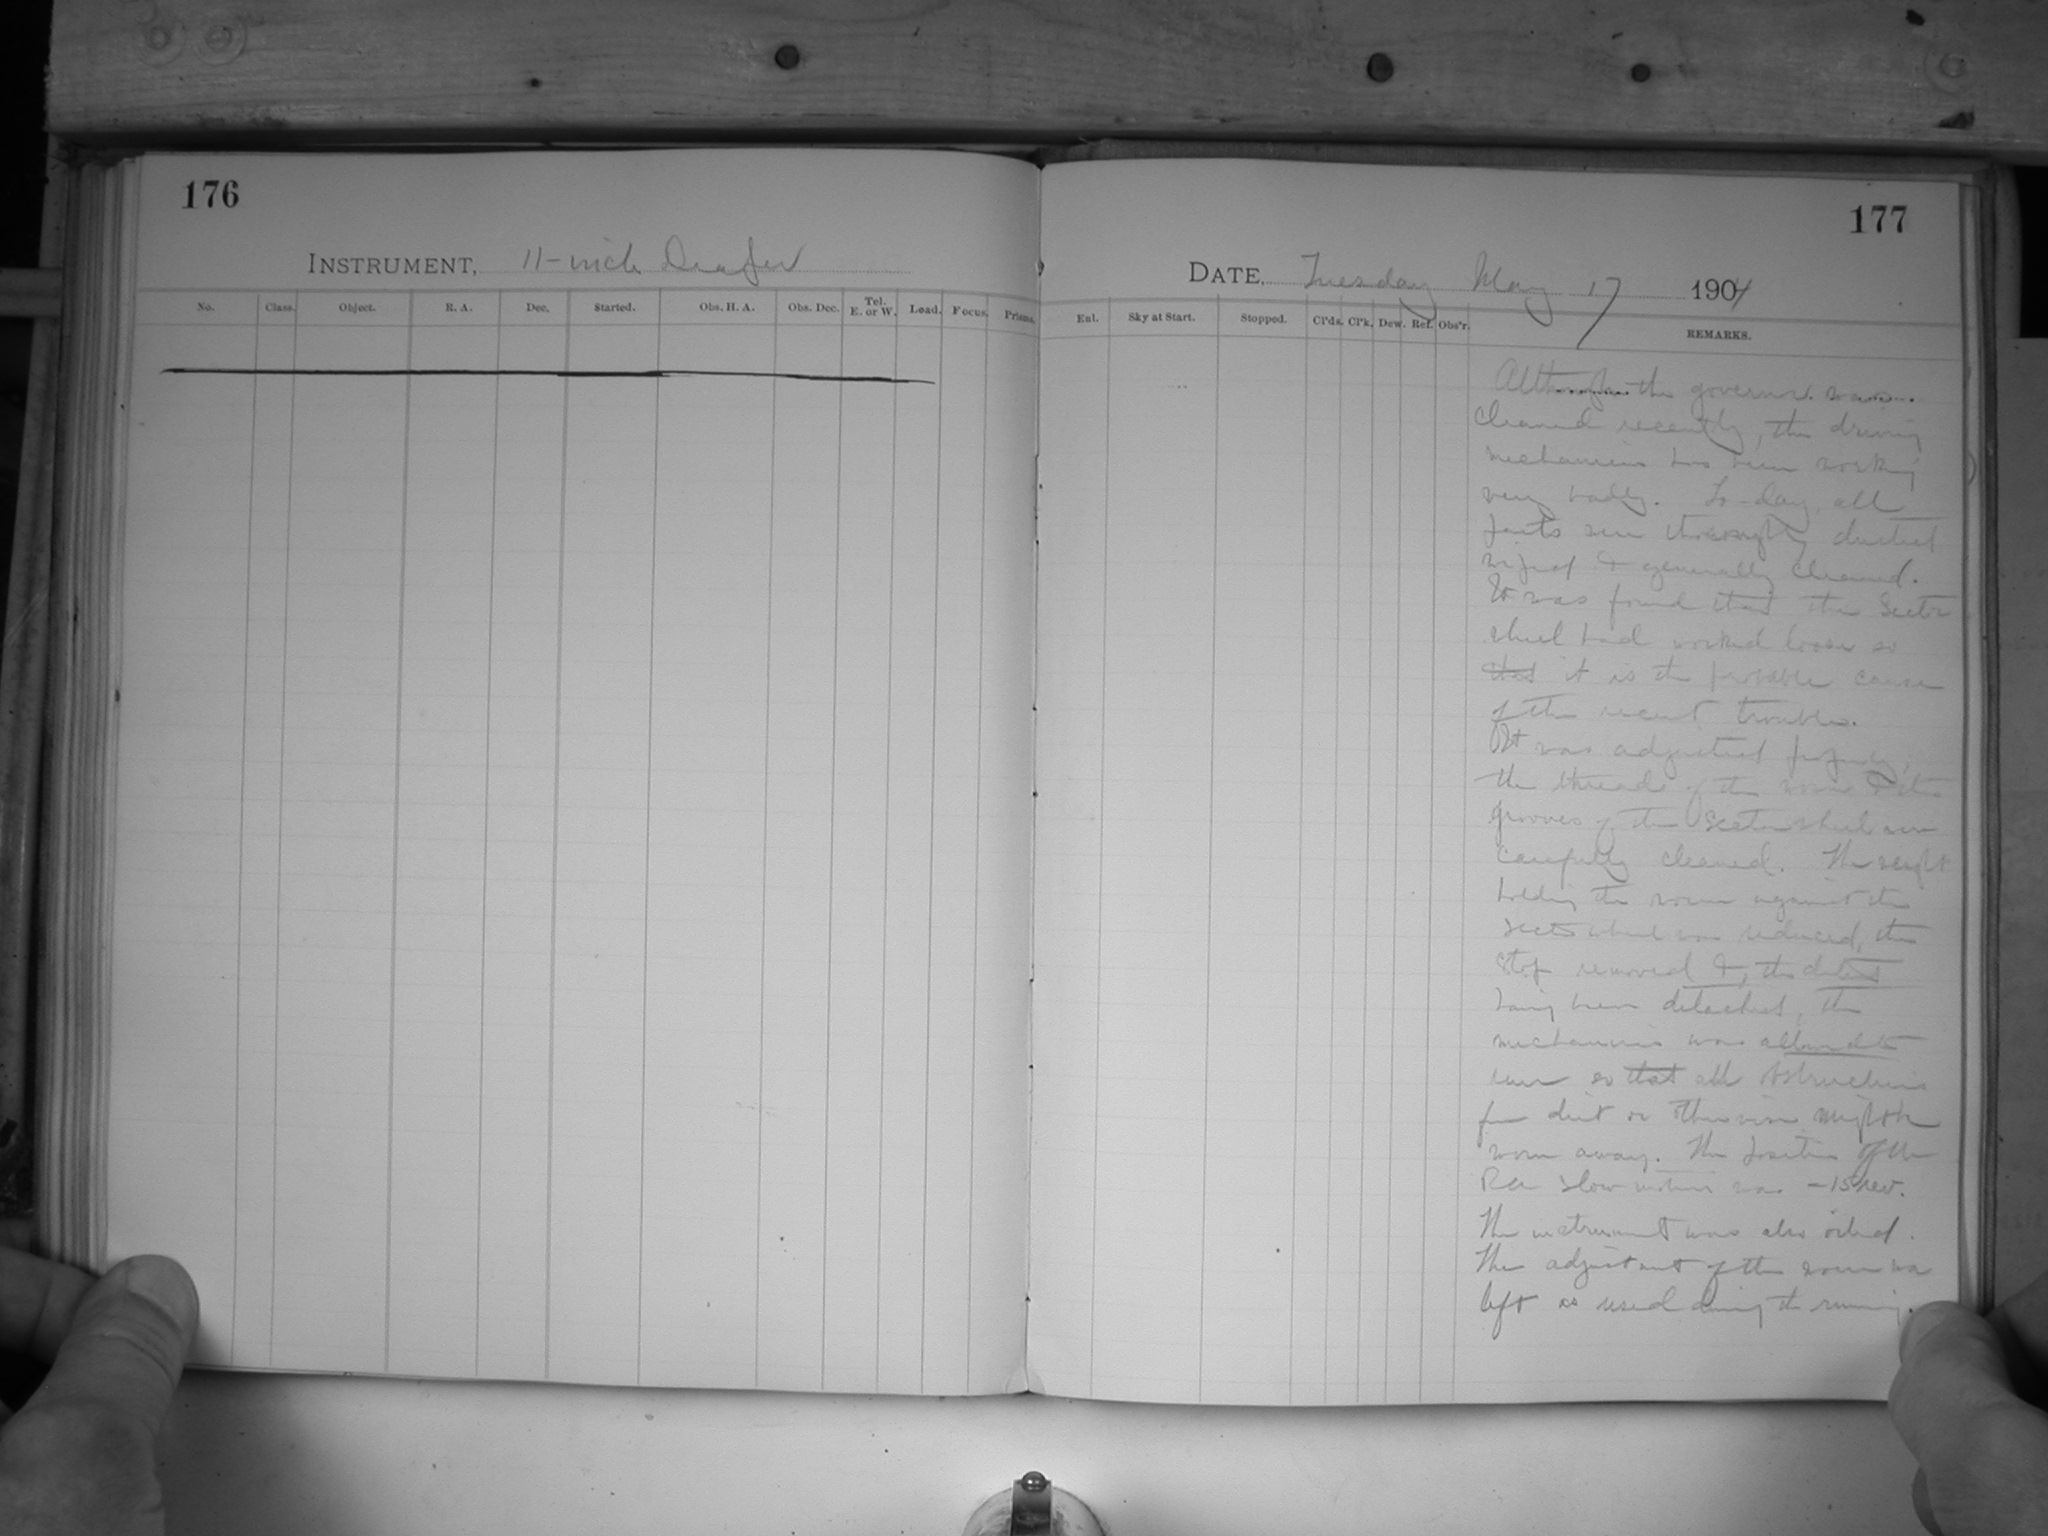 176
INSTRUMENT, 11-inch Draper
No. Class. Object. R. A. Dec. Started. Obs. H. A. Obs. Dec. Tel. E. or W. Load. Focus. Prisms.
177
DATE, Tuesday May 17 1904
Enl. Sky at Start. Stopped. Cl'ds. Cl'k. Dew. Ref. Obs'r. REMARKS.
Although the governor was
cleaned recently, the driving
mechanism has been working
very badly. To-day, all
parts were thoroughly dusted
wiped & generally cleaned.
It was found that the Sector
wheel had worked loose so
that it is the probable cause
of the recent troubles.
It was adjusted properly,
the threads of the worm & the
grooves of the Sector wheel were
carefully cleaned. The weight
holding the worm against the
sector wheel was reduced, the
stop removed &, the
having been detached, the
mechanism was allowed to
run so that all obstructions
fr dirt or otherwise might be
worn away. The position of the
RA slow motion was -15 rev.
The instrument was also oiled.
The adjustment of the worm was
left as used during the running.